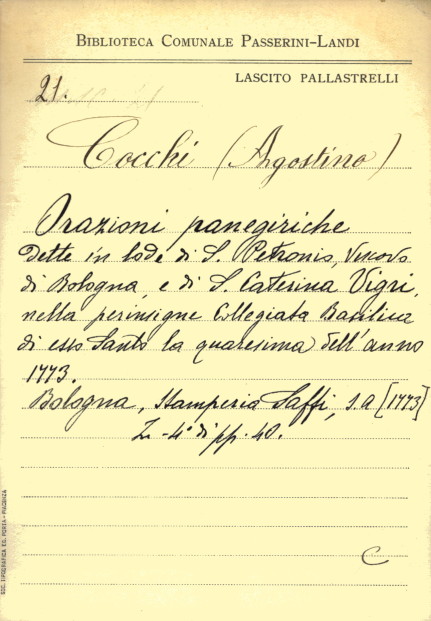 BIBLIOTECA COMUNALE PASSERINI-LANDI
LASCITO PALLASTRELLI
21.
Cocchi (Agostino)
Orazioni panegiriche
dette in lode di S. Petronio, Vescovo
di Bologna, e di S. Caterina Vigri,
nella perinsigne Collegiata Basilica
di esso Santo la quaresima dell'anno
1773.
Bologna, Stamperia Saffi, s.a [1773]
In-4° di pp. 40.
C
SOC. TIPOGRAFICA ED. PORTA - PIACENZA